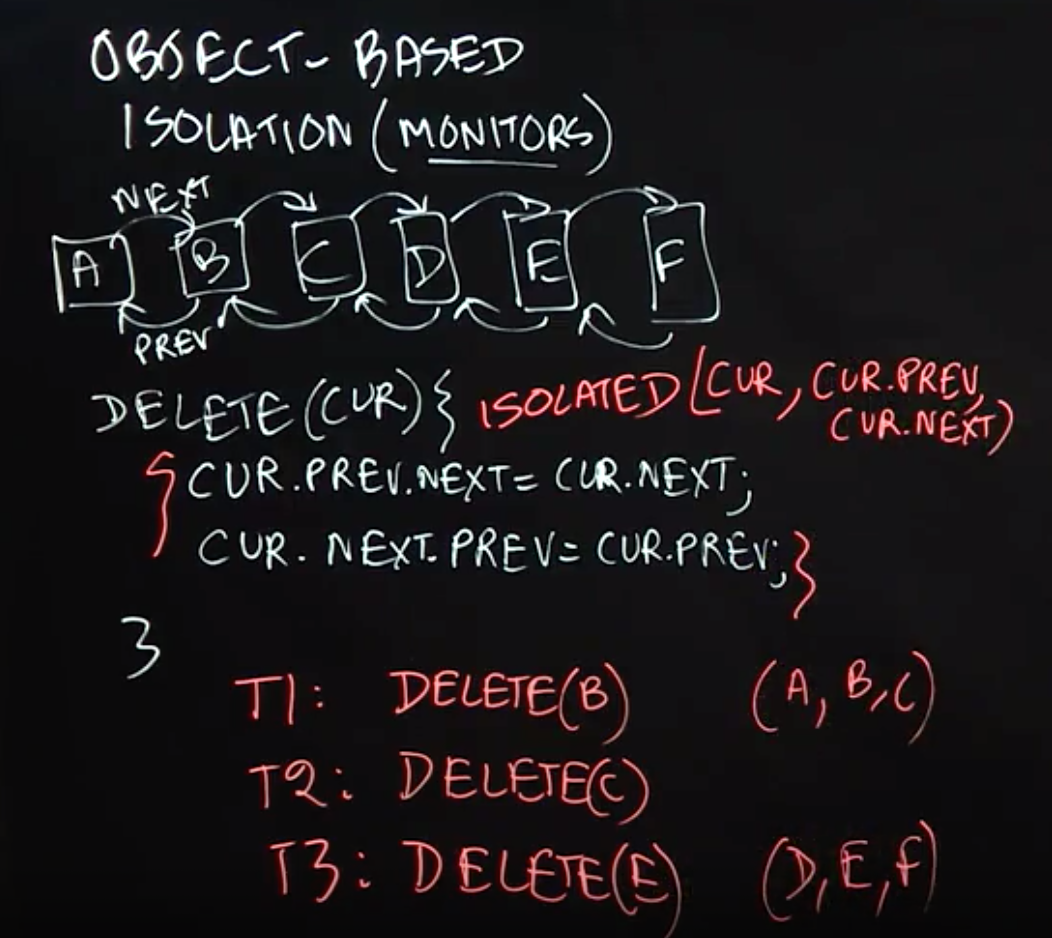 OBJECT- BASED
ISOLATION (MONITORS)
NEXT
A B C D E F
PREV
DELETE(CUR){ ISOLATED(CUR, CUR.PREV,
CUR.NEXT)
{ CUR.PREV.NEXT= CUR.NEXT;
CUR. NEXT.PREV= CUR.PREV; }
}
T1: DELETE(B) (A, B, C)
T2: DELETE(C)
T3: DELETE(E) (D, E, F)